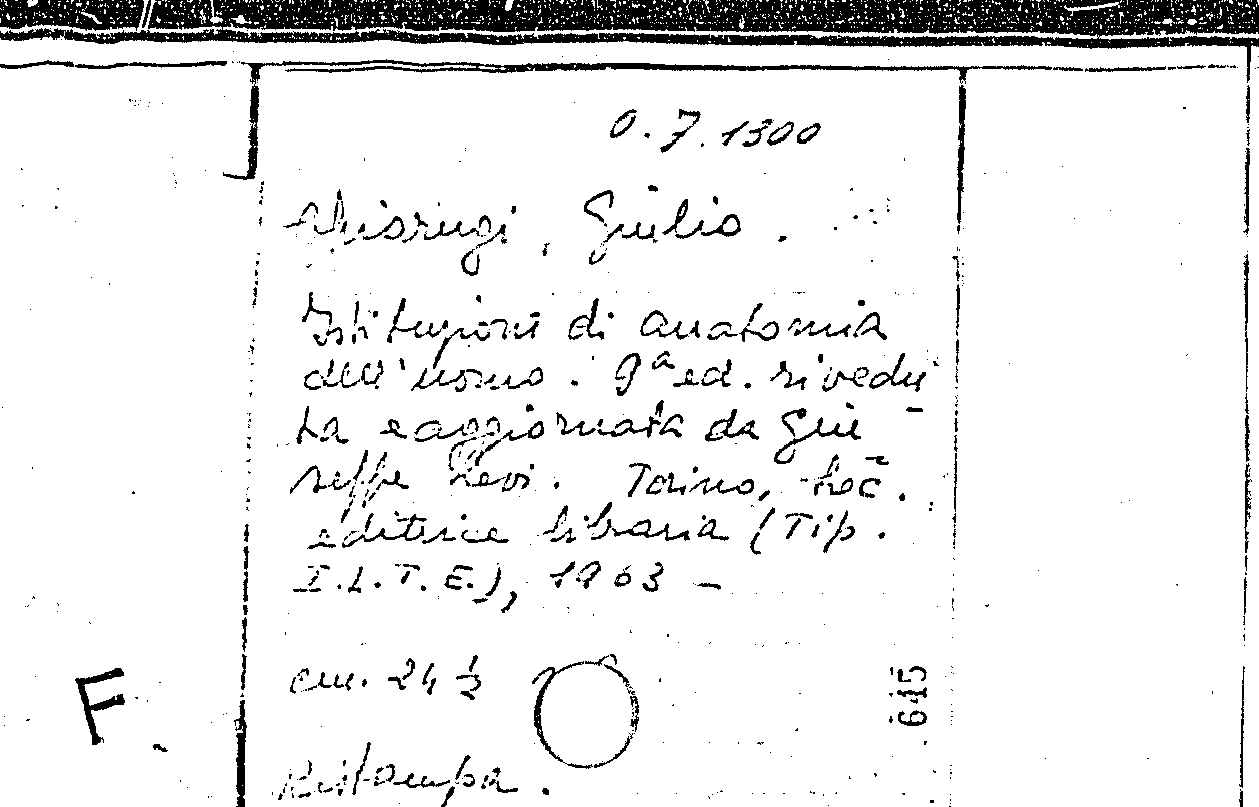 0.7.1300
Chiarugi, Giulio.
Istituzioni di anatomia
dell'uomo. 9ª ed. rivedu
ta e aggiornata da Giu-
seppe Levi. Torino, Soc.
editrice libraria (Tip.
I.L.T.E.), 1963 -
cm. 24 1/2
645
F
Ristampa.